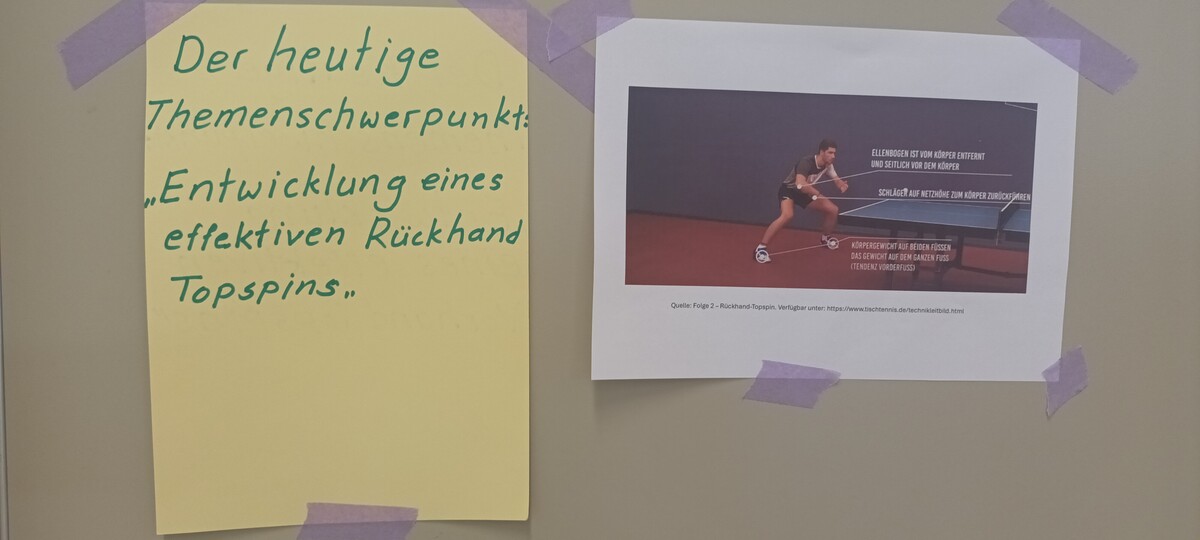 Der heutige
Themenschwerpunkt:
„Entwicklung eines
effektiven Rückhand
Topspins„
ELLENBOGEN IST VOM KÖRPER ENTFERNT
UND SEITLICH VOR DEM KÖRPER
SCHLÄGER AUF NETZHÖHE ZUM KÖRPER ZURÜCKFÜHREN
KÖRPERGEWICHT AUF BEIDEN FÜSSEN
DAS GEWICHT AUF DEM GANZEN FUSS
(TENDENZ VORDERFUSS)
Quelle: Folge 2 – Rückhand-Topspin. Verfügbar unter: https://www.tischtennis.de/technikleitbild.html